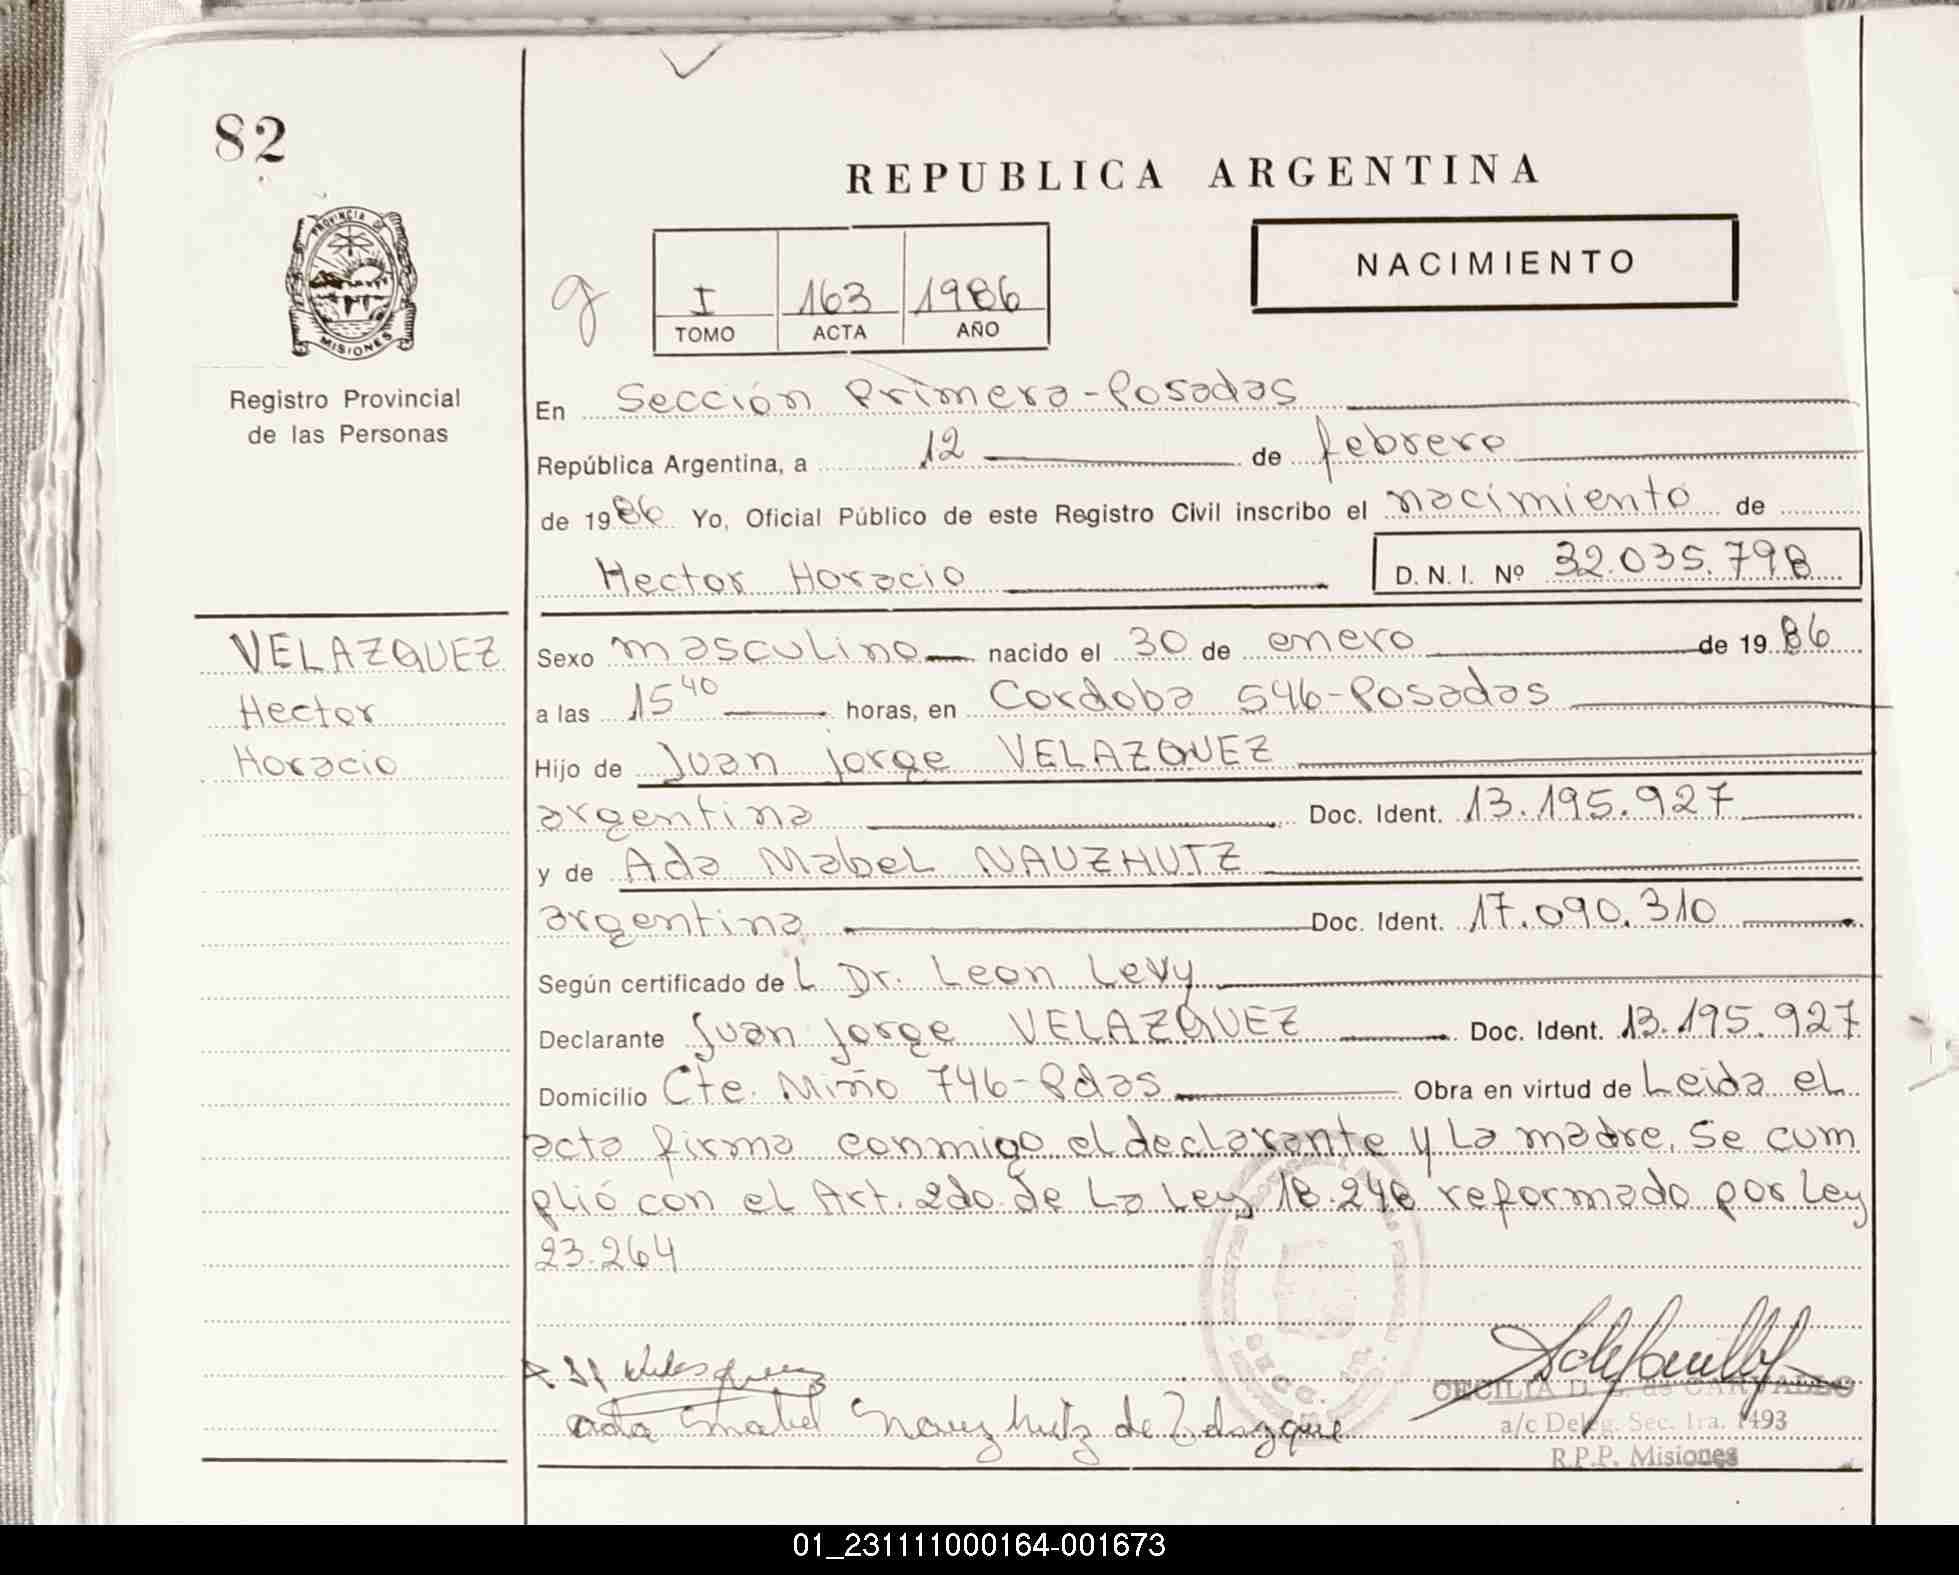 82
REPUBLICA ARGENTINA
PROVINCIA DE
MISIONES
NACIMIENTO
g
I 163 1986
TOMO ACTA AÑO
Registro Provincial
de las Personas
En Sección Primera-Posadas
República Argentina, a 12 de febrero
de 1986 Yo, Oficial Público de este Registro Civil inscribo el nacimiento de
Hector Horacio D.N.I. Nº 32.035.798
VELAZQUEZ
Hector
Horacio
Sexo masculino nacido el 30 de enero de 1986
a las 15 40 horas, en Cordoba 546-Posadas
Hijo de Juan Jorge VELAZQUEZ
argentina Doc. Ident. 13.195.927
y de Ada Mabel NAUZHUTZ
argentina Doc. Ident. 17.090.310
Según certificado de L Dr. Leon Levy
Declarante Juan Jorge VELAZQUEZ Doc. Ident. 13.195.927
Domicilio Cte. Miño 746-Pdas Obra en virtud de Leida el
acta firma conmigo el declarante y la madre. Se cum
plió con el Art. 2do. de la Ley 18.248 reformado por Ley
23.264
Ada Mabel Nauzhutz de
CECILIA D. de
a/c Deleg. Sec. 1ra. 1493
R.P.P. Misiones
01_231111000164-001673